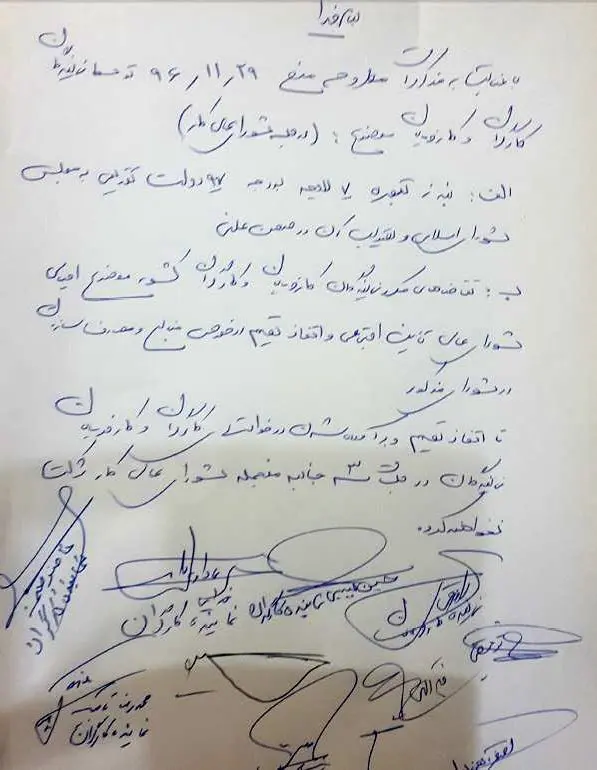 بنام خدا
با عنایت به مذاکرات مطروحه مورخ ۹۶/۱۱/۲۹ که مسئله نمایندگان
کارگران و کارفرمایان موضوع : (در جلسه شورای عالی کار)
الف : لغو تبصره ۷ لایحه بودجه ۹۷ دولت تقدیمی به مجلس
شورای اسلامی و تصویب آن در صحن علنی
ب : تقاضاهای مکرر نمایندگان کارفرمایان و کارگران کشور موضوع احیای
شورای عالی تامین اجتماعی و اتخاذ تصمیم درخصوص منابع و مصارف سازمان
در شورای مذکور
تا اتخاذ تصمیم و برآورده شدن درخواست کارگران و کارفرمایان
نمایندگان در جلسات سه جانبه منجمله شورای عالی کار شرکت
نخواهند کرد
حسین حبیبی نماینده کارگران
نماینده کارگران
محمدرضا
نماینده کارگران